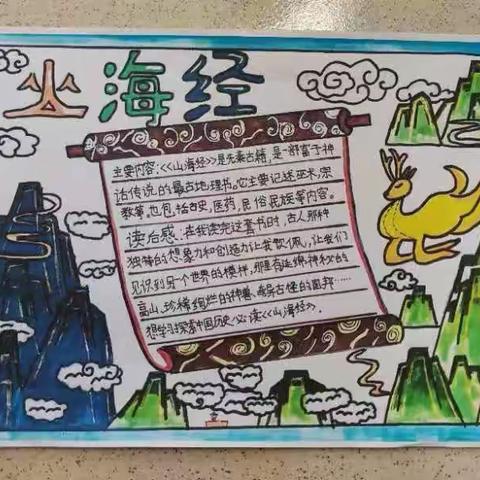 山海经
主要内容:<<山海经>>是先秦古籍,是一部富于神
话传说的最古地理书。它主要记述巫术、宗
教等,也包括古史,医药,民俗民族等内容。
读后感:在我读完这套书时,古人那种
独特的想象力和创造力让我敬佩,让我们
见识到另个世界的模样,那里有连绵神秘的
高山、珍稀绚烂的神兽、奇异古怪的国邦……
想学习探索中国历史必读<<山海经>。